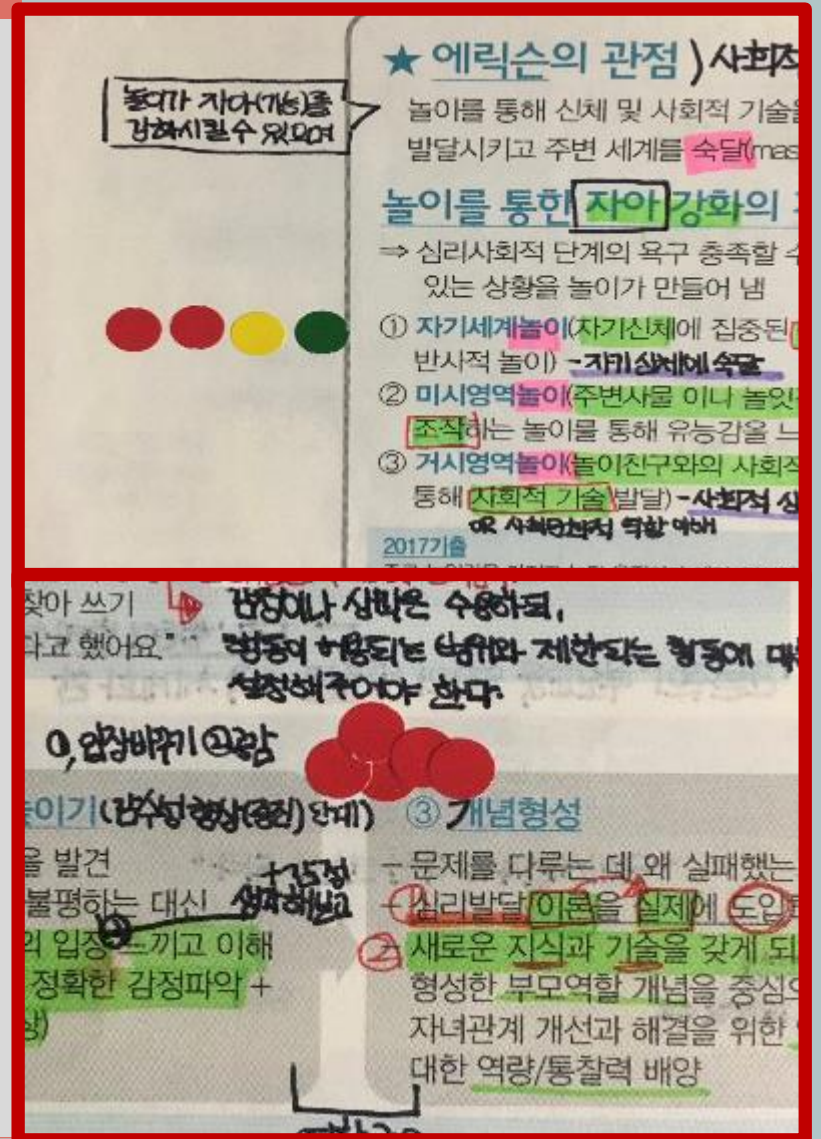 ★ 에릭슨의 관점 ) 사회적
놀이가 자아(기능)를
강화시킬수 있으며
놀아를 통해 신체 및 사회적 기술을
발달시키고 주변 세계를 숙달(mas
놀이를 통한 자아 강화의
⇒ 심리사회적 단계의 욕구 충족할 수
있는 상황을 놀이가 만들어 냄
① 자기세계놀이(자기신체에 집중된
반사적 놀이) - 자기신체에 숙달
② 미시영역놀이(주변사물 이나 놀잇
조작하는 놀이를 통해 유능감을 느
③ 거시영역놀이(놀이친구와의 사회적
통해 사회적 기술 발달) - 사회적 상
OR 사회문화적 역할 이해
2017기출
찾아 쓰기
감정이나 생각은 수용하되,
다고 했어요."
"행동이 허용되는 범위와 제한되는 행동에 대
설정해주어야 한다.
입장바꾸기 ② 공감
높이기 (감수성 향상(증진) 단계)
③ 개념형성
을 발견
불평하는 대신
생각해보고
의 입장 느끼고 이해
정확한 감정파악 +
상)
- 문제를 다루는 데 왜 실패했는
① - 심리발달 이론을 실제에 도입
② - 새로운 지식과 기술을 갖게 되
형성한 부모역할 개념을 중심으
자녀관계 개선과 해결을 위한
대한 역량/통찰력 배양